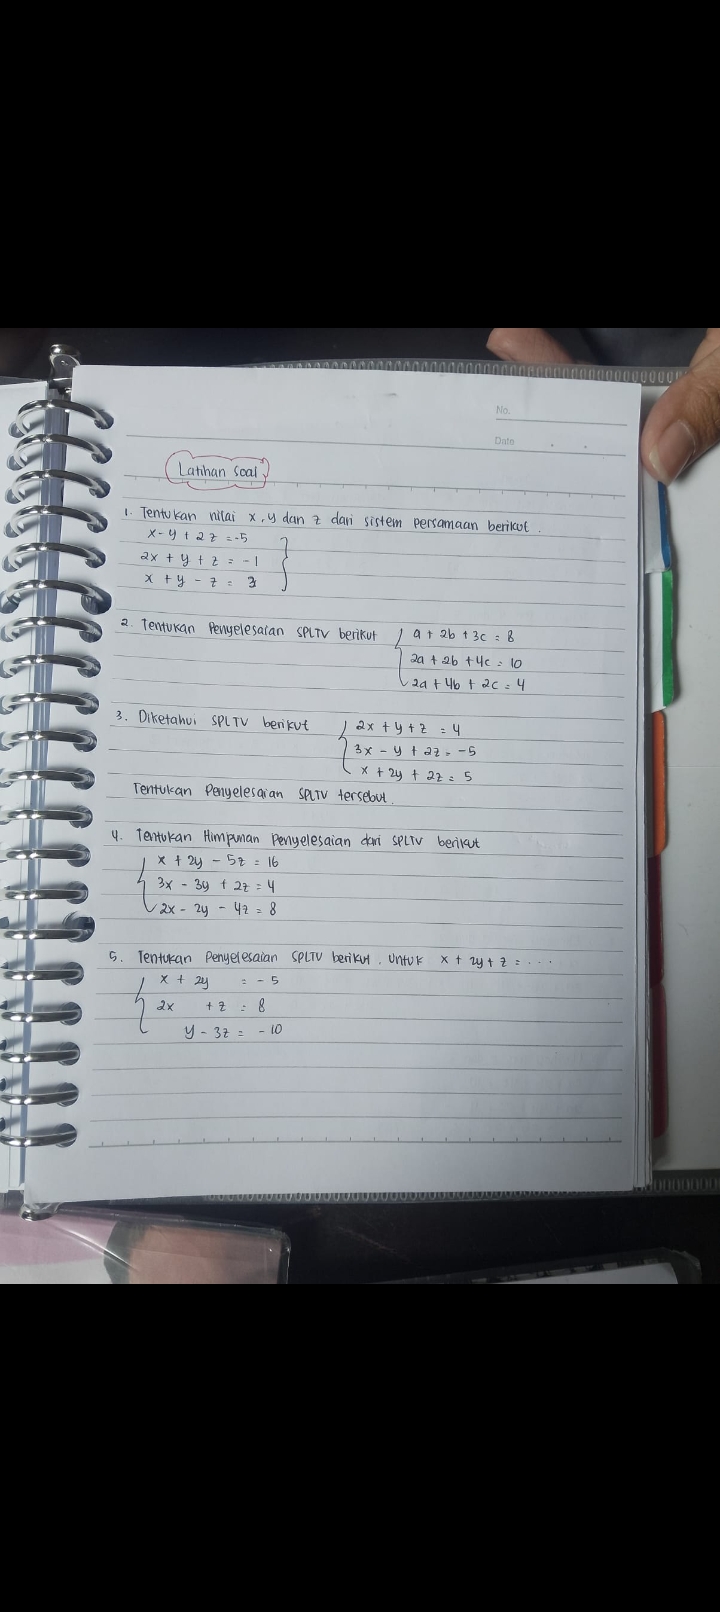 No.
Date
Latihan Soal
1. Tentukan nilai x, y dan z dari sistem persamaan berikut.
x - y + 2z = -5
2x + y + z = -1
x + y - z = 3
2. Tentukan Penyelesaian SPLTV berikut
a + 2b + 3c = 8
2a + 2b + 4c = 10
2a + 4b + 2c = 4
3. Diketahui SPLTV berikut
2x + y + z = 4
3x - y + 2z = -5
x + 2y + 2z = 5
Tentukan Penyelesaian SPLTV tersebut.
4. Tentukan Himpunan Penyelesaian dari SPLTV berikut
x + 2y - 5z = 16
3x - 3y + 2z = 4
2x - 2y - 4z = 8
5. Tentukan Penyelesaian SPLTV berikut. Untuk x + 2y + z = ...
x + 2y = -5
2x + z = 8
y - 3z = -10